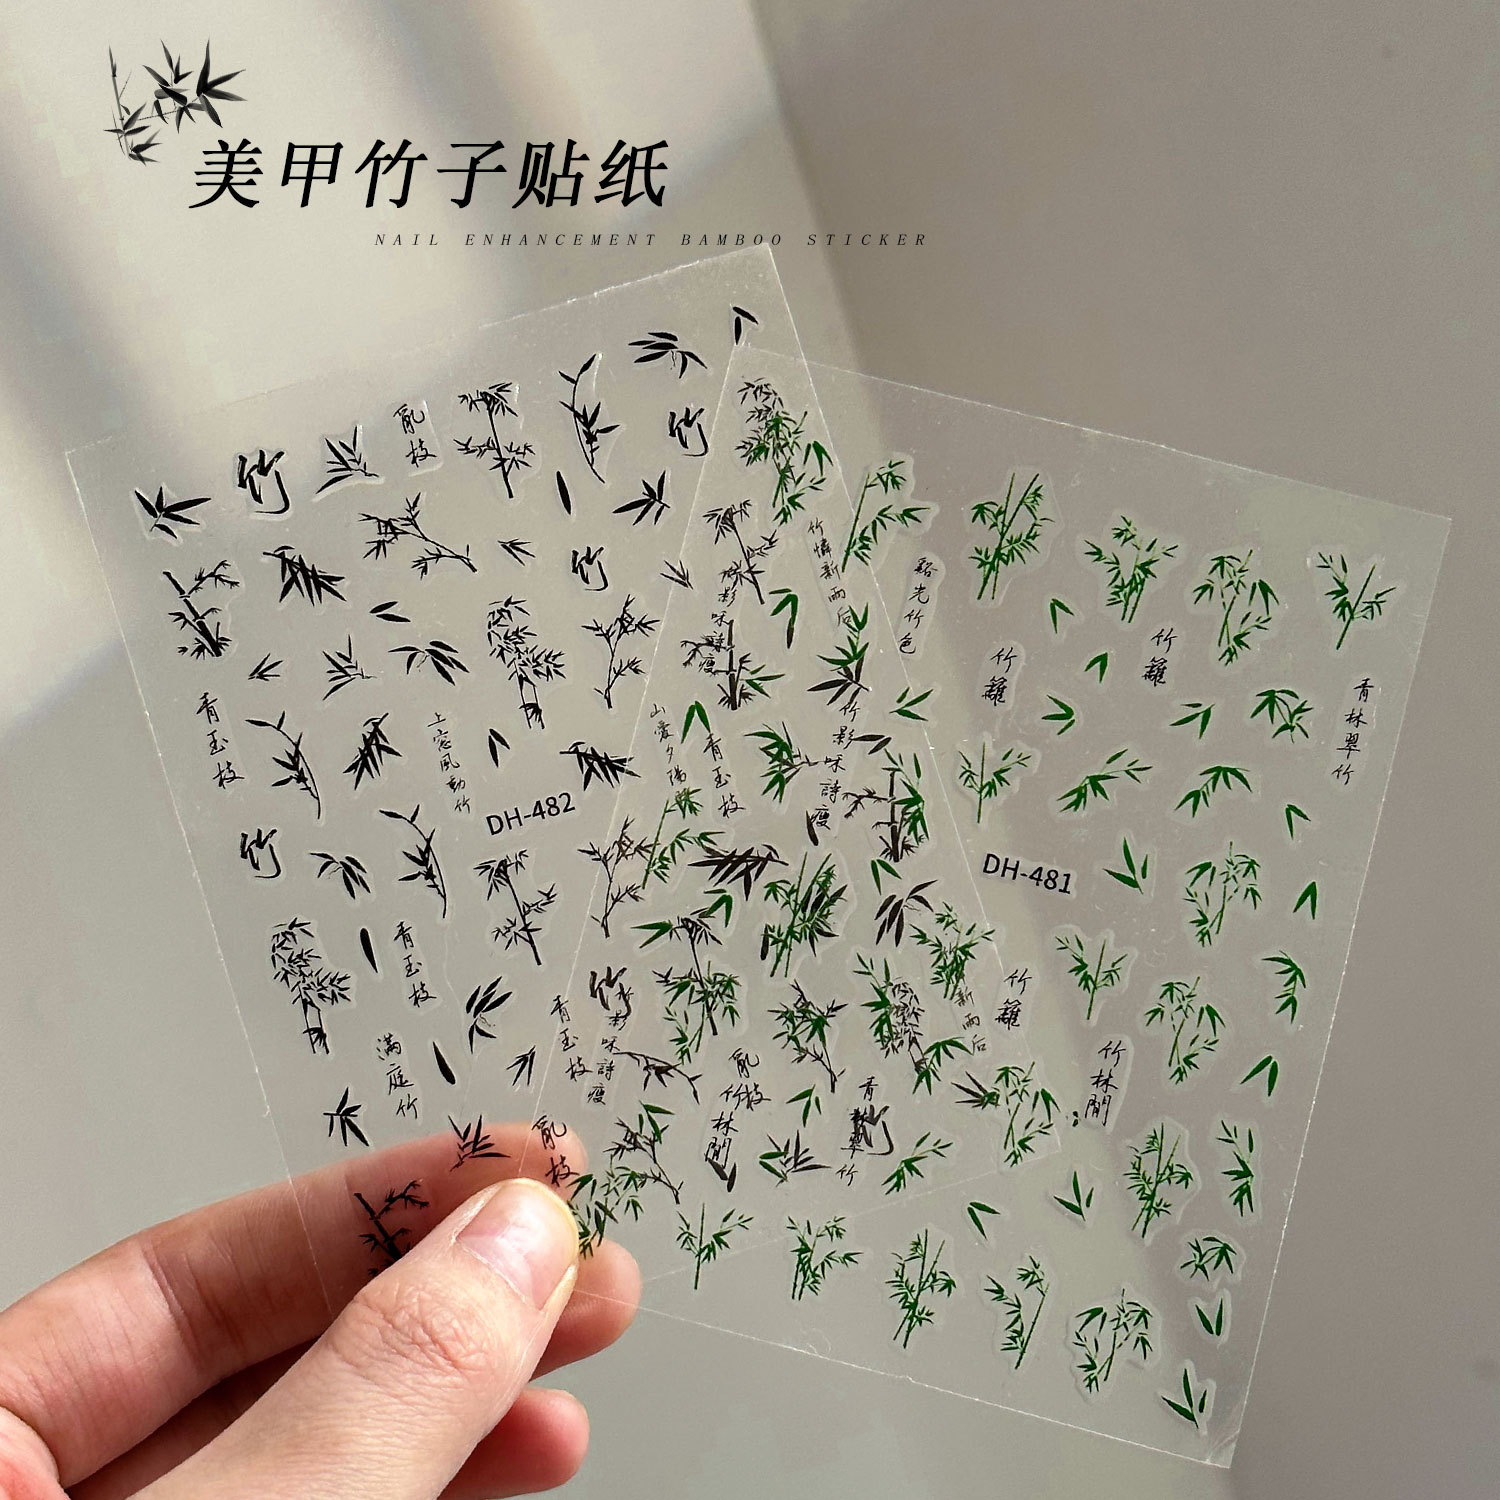 美甲竹子贴纸
NAIL ENHANCEMENT BAMBOO STICKER
亂枝
竹
竹
竹
竹憐新雨后
谿光竹色
竹
竹籬
竹籬
青林翠竹
青玉枝
上窓風動竹
山愛夕陽時
青玉枝
竹影咏詩瘦
DH-482
竹
DH-481
青玉枝
青玉枝
竹
竹籬
新雨后
滿庭竹
亂枝
竹林閒
竹林閒
青林翠竹
亂枝